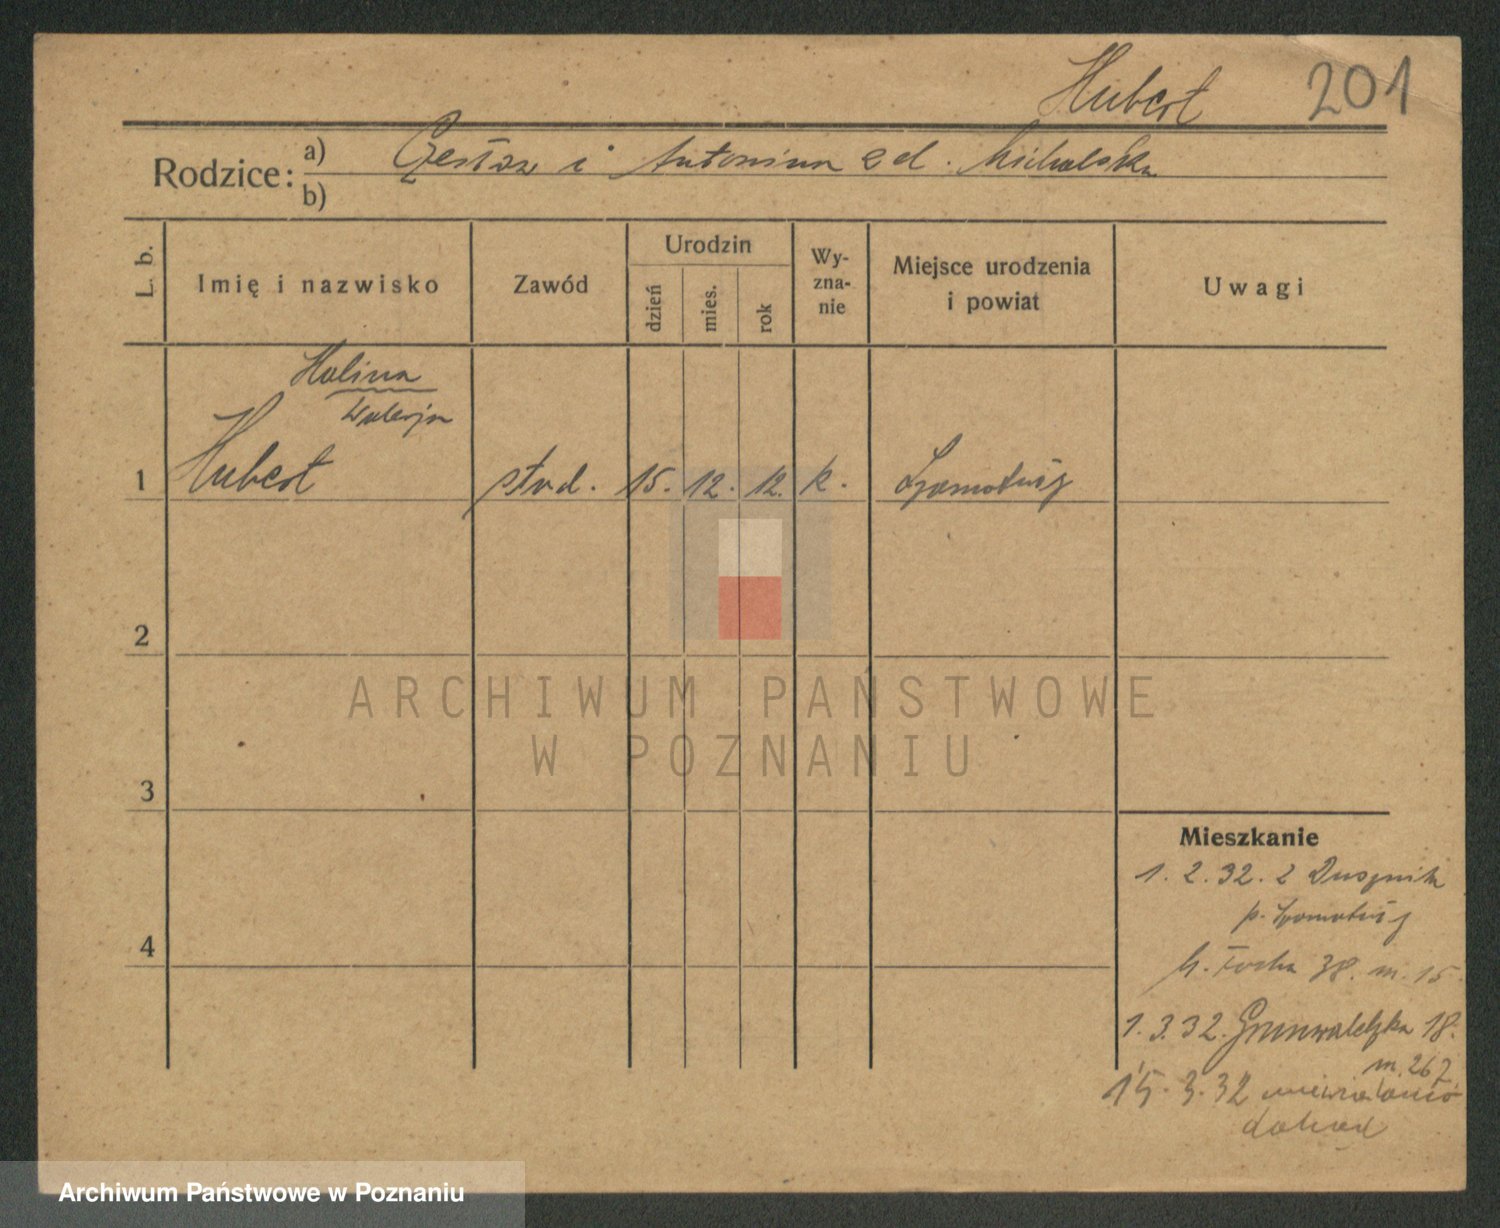 Hubert 201
Rodzice: a) Czesław i Antonina z d. Michalska
b)
L. b. Imię i nazwisko Zawód Urodzin dzień mies. rok Wy-zna-nie Miejsce urodzenia i powiat Uwagi
Halina
Walerja
1 Hubert stud. 15. 12. 12. k. Szamotuły
2
ARCHIWUM PAŃSTWOWE
W POZNANIU
3
Mieszkanie
1. 2. 32. z Dusznik
p. Szamotuły
4
M. Focha 38. m. 15
1. 3. 32. Grunwaldzka 18.
m. 267
15. 3. 32 niewiadomo
dokąd
Archiwum Państwowe w Poznaniu